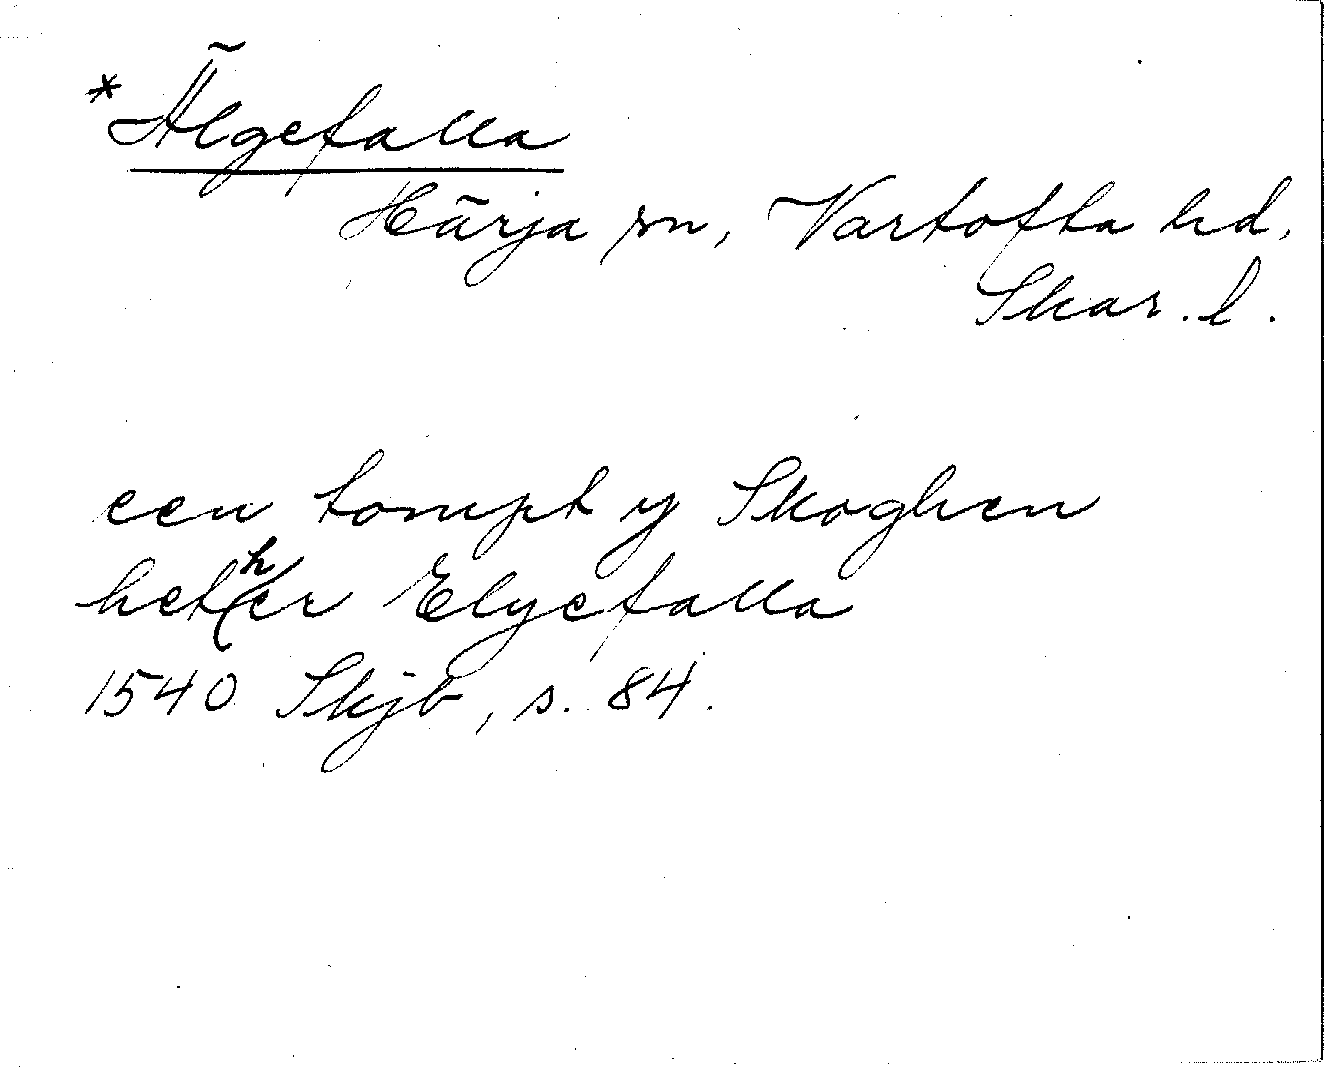 *Älgefalla
Härja sn, Vartofta hd,
Skar. l.
een tompt y Skoghen
hether Elyefalla
1540 Skjb, s. 84.